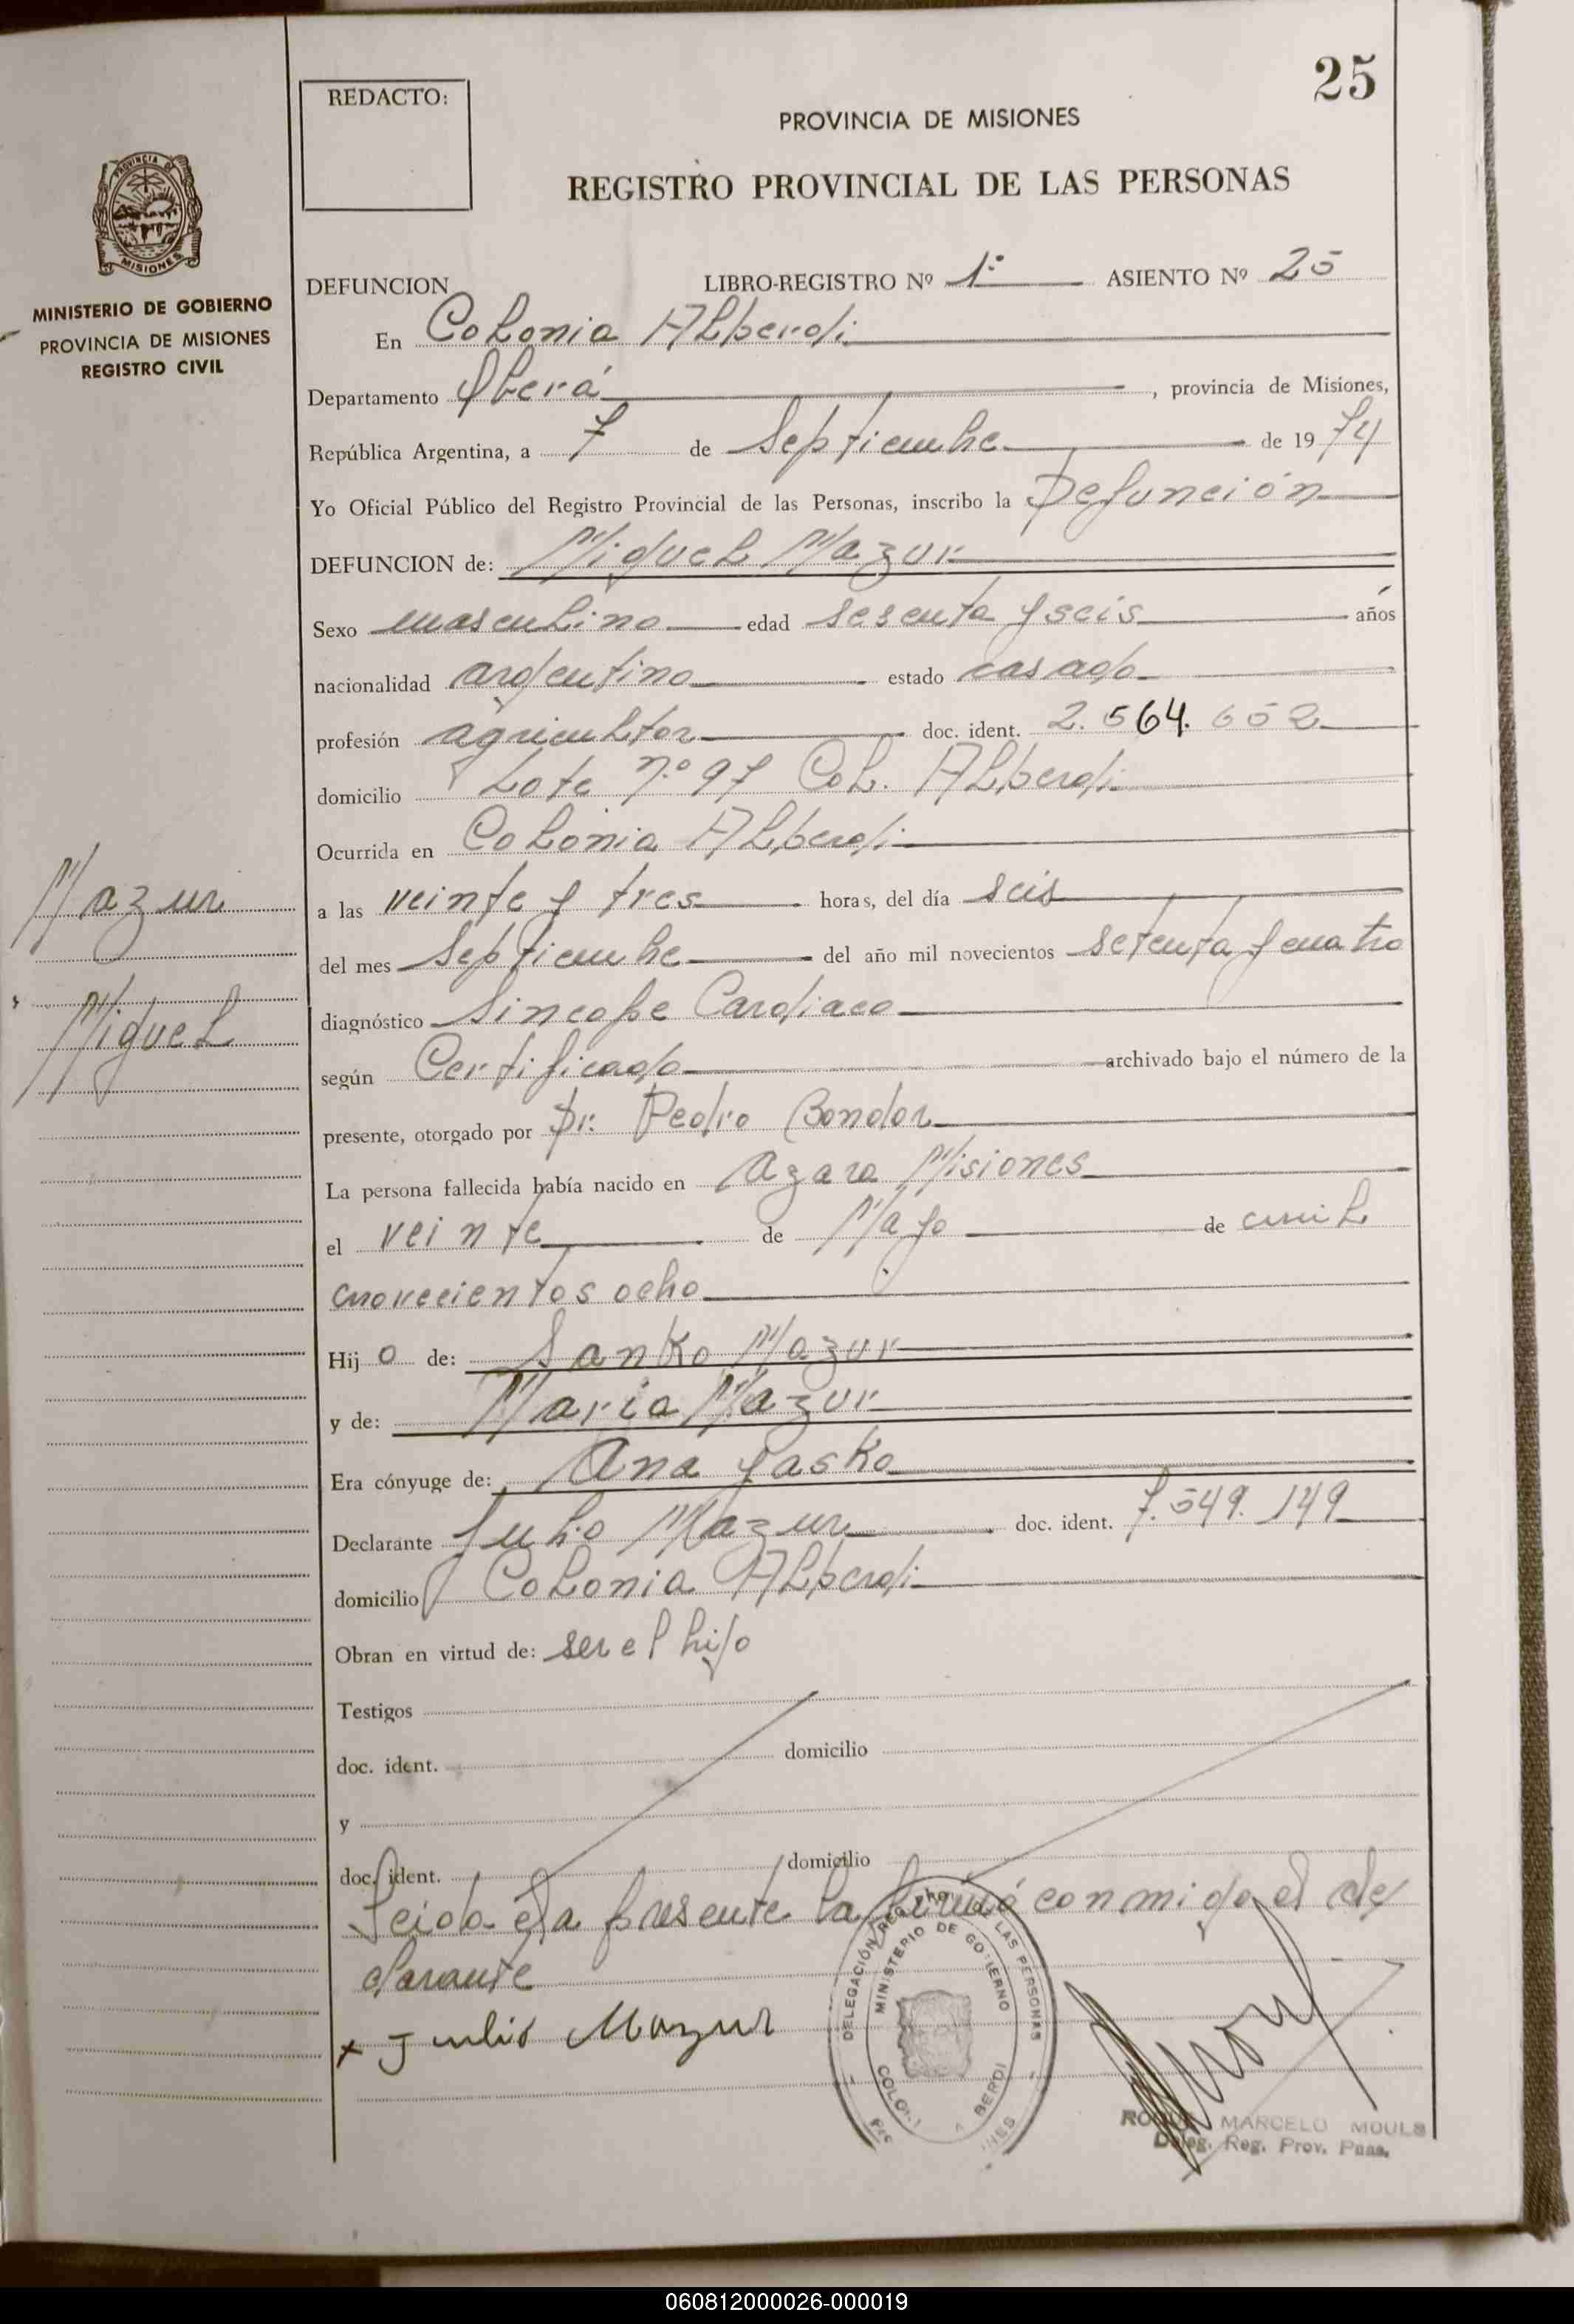 25
REDACTO:
PROVINCIA DE MISIONES
REGISTRO PROVINCIAL DE LAS PERSONAS
PROVINCIA DE
MISIONES
MINISTERIO DE GOBIERNO
PROVINCIA DE MISIONES
REGISTRO CIVIL
DEFUNCION LIBRO-REGISTRO Nº 1º ASIENTO Nº 25
En Colonia Alberdi
Departamento Oberá, provincia de Misiones,
República Argentina, a 7 de Septiembre de 1974
Yo Oficial Público del Registro Provincial de las Personas, inscribo la Defunción
DEFUNCION de: Miguel Mazur
Sexo masculino edad sesenta y seis años
nacionalidad argentino estado casado
profesión agricultor doc. ident. 2.564.652
domicilio Lote n.º 97 Col. Alberdi
Ocurrida en Colonia Alberdi
Mazur
a las veinte y tres horas, del día seis
del mes Septiembre del año mil novecientos setenta y cuatro
Miguel
diagnóstico Sincope Cardiaco
según Certificado archivado bajo el número de la
presente, otorgado por Dr. Pedro Bondor
La persona fallecida había nacido en Azara Misiones
el veinte de Mayo de mil
novecientos ocho
Hijo de: Sanko Mazur
y de: Maria Mazur
Era cónyuge de: Ana Yasko
Declarante Julio Mazur doc. ident. 7.549.149
domicilio Colonia Alberdi
Obran en virtud de: ser el hijo
Testigos
doc. ident. domicilio
y
doc. ident. domicilio
Leida la presente la firmó conmigo el de
clarante
x Julio Mazur
DELEGACIÓN REG. LAS PERSONAS
MINISTERIO DE GOBIERNO
MARCELO MOULS
Deleg. Reg. Prov. Pnas.
060812000026-000019